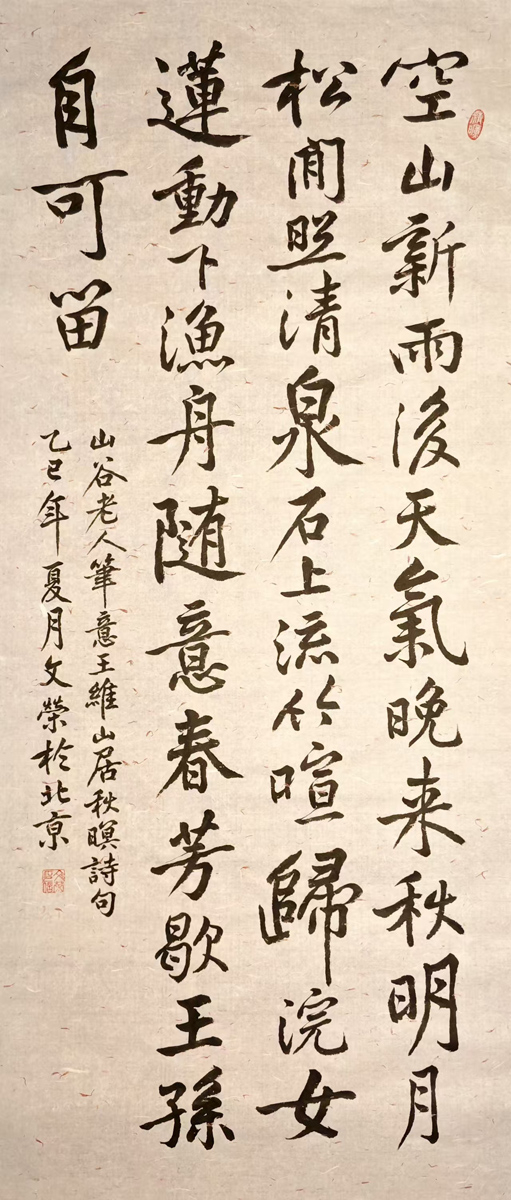 空山新雨後天氣晚来秋明月
松間照清泉石上流竹喧歸浣女
蓮動下漁舟随意春芳歇王孫
自可留
山谷老人筆意王維山居秋暝詩句
乙巳年夏月文榮於北京